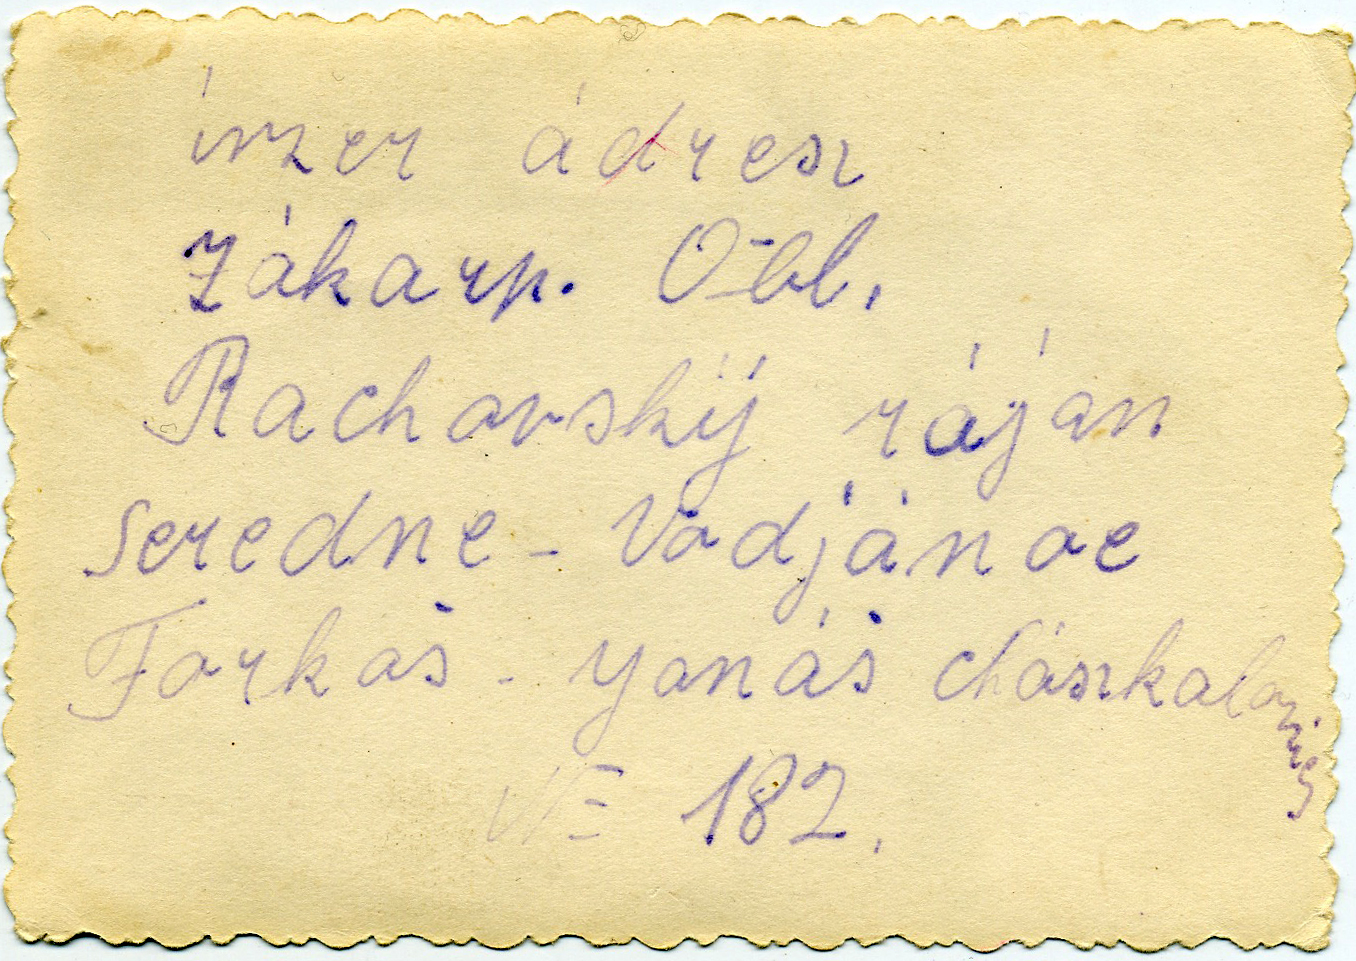 inzer ádresz
Zákarp. Obl.
Rachovskij ráján
Seredne - Vodjánoe
Farkaš - Yanáš chászkalovics
№ 182.